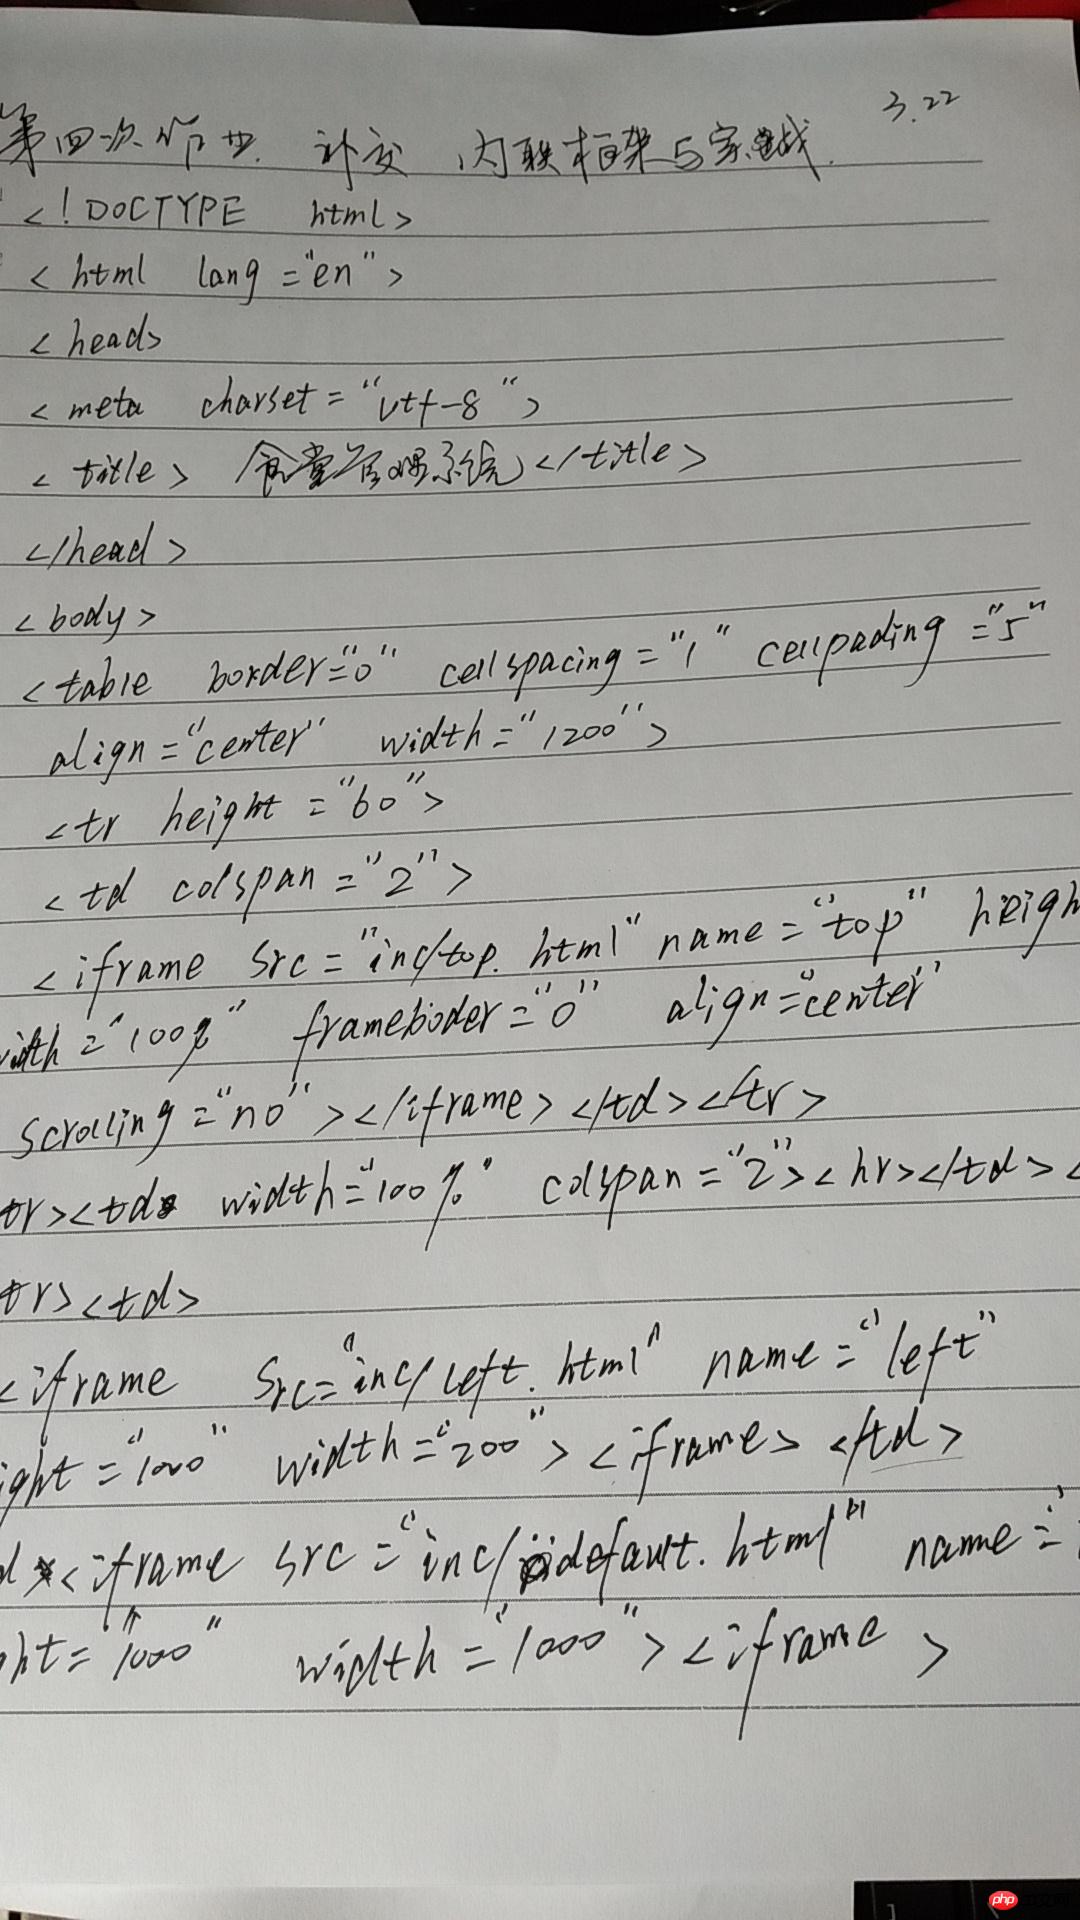 第四次作业 补交 内联框架与实战. 3.22
<!DOCTYPE html>
<html lang="en">
<head>
<meta charset="utf-8">
<title>食堂管理系统</title>
</head>
<body>
<table border="0" cellspacing="1" cellpading="5"
align="center" width="1200">
<tr height="60">
<td colspan="2">
<iframe src="inc/top.html" name="top" heigh
width="100%" frameboder="0" align="center"
scrolling="no"></iframe></td></tr>
tr><td width="100%" colspan="2"><hr></td><
tr><td>
<iframe src="inc/left.html" name="left"
ight="1000" width="200"><iframe></td>
d <iframe src="inc/default.html" name="
ht="1000" width="1000"><iframe>
php